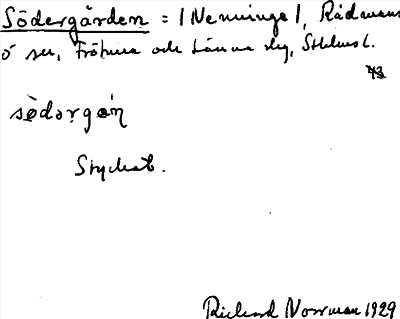 Södergården = 1 Nenninge 1, Rådmans
ö sn, Frötuna och Länna slg, Sthlms l.
43
södərgɑ́n
Styckat.
Richard Norrman 1929